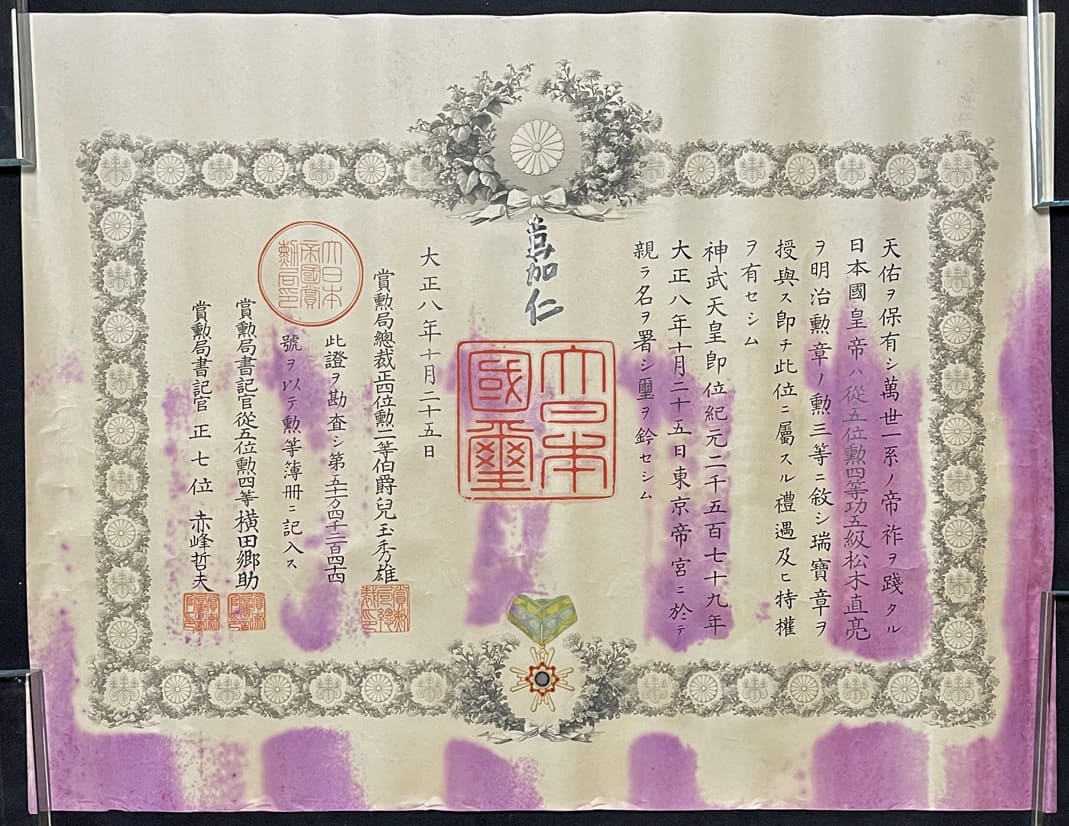 天佑ヲ保有シ萬世一系ノ帝祚ヲ踐タル
日本國皇帝ハ從五位勲四等功五級松木直亮
ヲ明治勲章ノ勲三等ニ敘シ瑞寶章ヲ
授與ス即チ此位ニ屬スル禮遇及ヒ特權
ヲ有セシム
神武天皇即位紀元二千五百七十九年
大正八年十月二十五日東京帝宮ニ於テ
親ラ名ヲ署シ璽ヲ鈐セシム
嘉仁
大日本國璽
大正八年十月二十五日
賞勲局總裁正四位勲二等伯爵兒玉秀雄
賞勲局總裁之印
大日本帝國賞勲局印
此證ヲ勘査シ第五万四千二百四十四
號ヲ以テ勲等簿冊ニ記入ス
賞勲局書記官從五位勲四等横田郷助
賞勲局書記官正七位赤峰哲夫